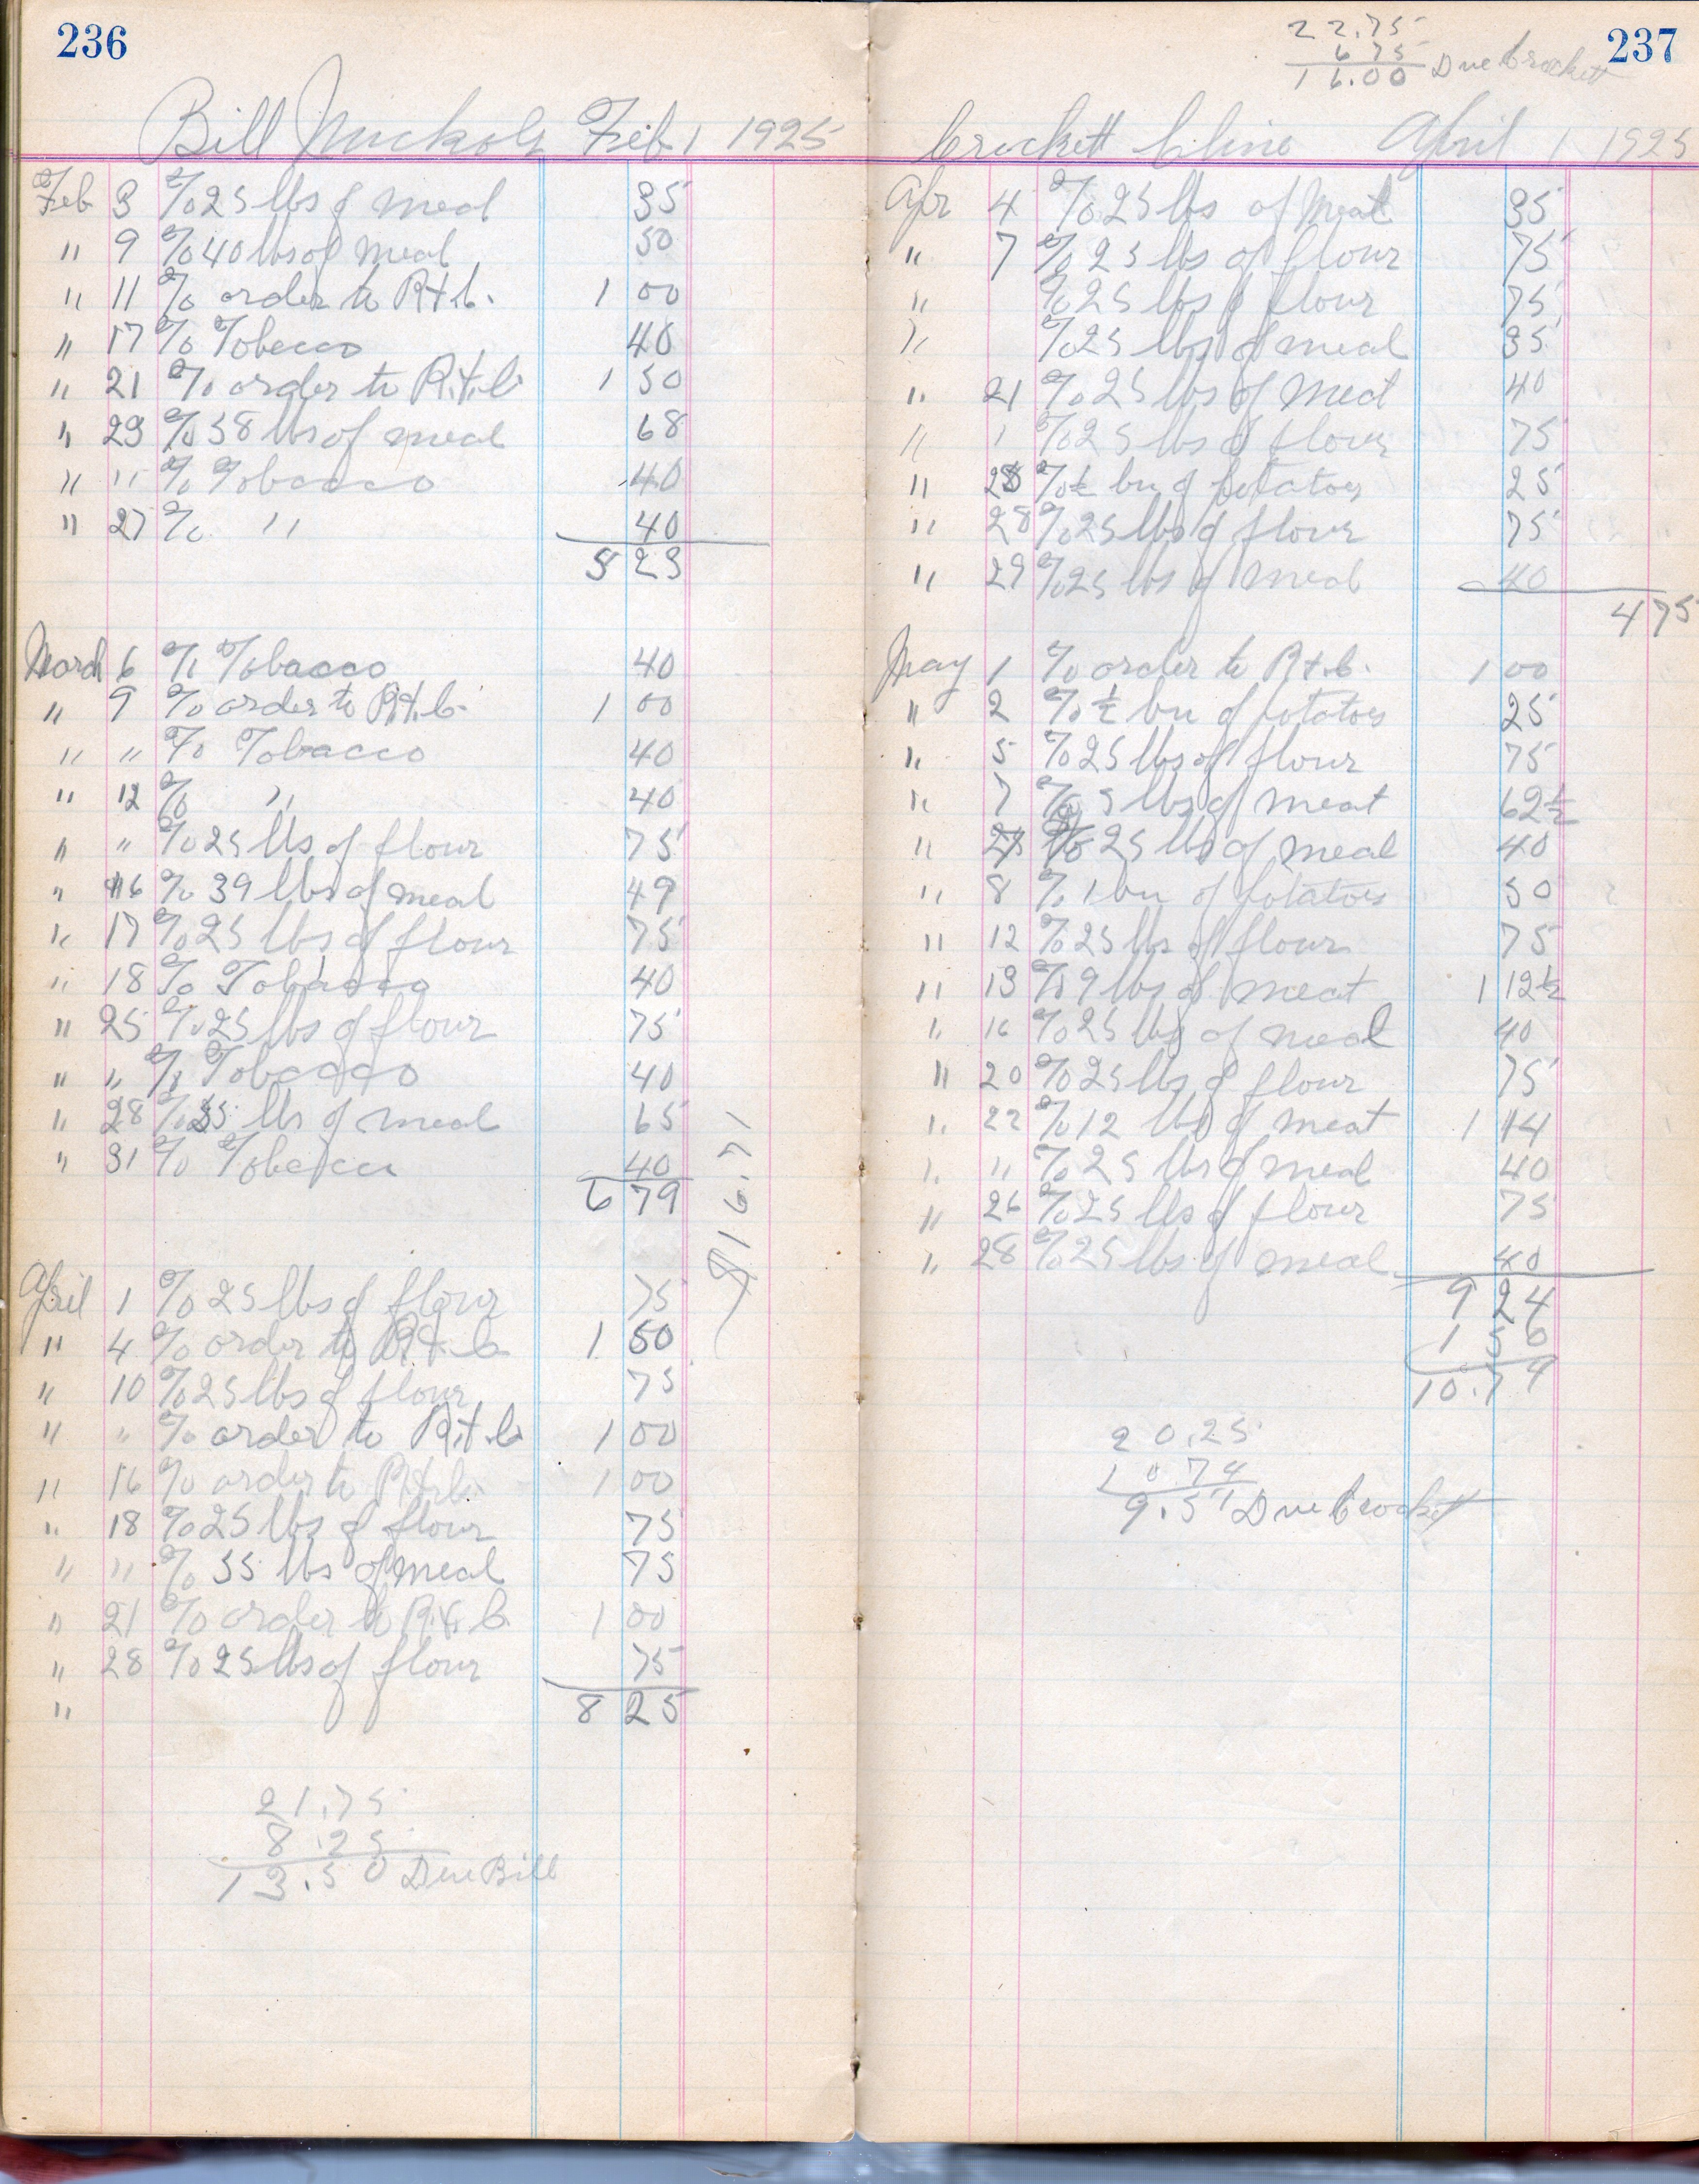 236
Bill Nuckols Feb 1 1925
Feb 3 % 25 lbs of meal 35
" 9 % 40 lbs of meal 50
" 11 % order to R.H.C. 1 00
" 17 % Tobacco 40
" 21 % order to R.H.C. 1 50
" 23 % 58 lbs of meal 68
" " % Tobacco 40
" 27 % " 40
5 23
March 6 % Tobacco 40
" 9 % order to R.H.C. 1 00
" " % Tobacco 40
" 12 % " 40
" " % 25 lbs of flour 75
" 16 % 39 lbs of meal 49
" 17 % 25 lbs of flour 75
" 18 % Tobacco 40
" 25 % 25 lbs of flour 75
" " % Tobacco 40
" 28 % 55 lbs of meal 65
" 31 % Tobacco 40
6 79
$16.71
April 1 % 25 lbs of flour 75
" 4 % order to R.H.C. 1 50
" 10 % 25 lbs of flour 75
" " % order to R.H.C. 1 00
" 16 % order to R.H.C. 1 00
" 18 % 25 lbs of flour 75
" " % 55 lbs of meal 75
" 21 % order to R.H.C. 1 00
" 28 % 25 lbs of flour 75
" 8 25
21.75
8.25
13.50 Due Bill
237
22.75
6 75
16.00 Due Crockett
Crockett Cline April 1 1925
Apr 4 % 25 lbs of Meal 35
" 7 % 25 lbs of flour 75
" % 25 lbs of flour 75
" % 25 lbs of meal 35
" 21 % 25 lbs of meal 40
" " % 25 lbs of flour 75
" 28 % ½ bu of potatoes 25
" 28 % 25 lbs of flour 75
" 29 % 25 lbs of meal 40
4 75
May 1 % order to R.H.C. 1 00
" 2 % ½ bu of potatoes 25
" 5 % 25 lbs of flour 75
" 7 % 5 lbs of meat 62½
" % 25 lbs of meal 40
" 8 % 1 bu of potatoes 50
" 12 % 25 lbs of flour 75
" 13 % 9 lbs of meat 1 12½
" 16 % 25 lbs of meal 40
" 20 % 25 lbs of flour 75
" 22 % 12 lbs of meat 1 14
" " % 25 lbs of meal 40
" 26 % 25 lbs of flour 75
" 28 % 25 lbs of meal 40
9 24
1 50
10.79
20.25
10 74
9.51 Due Crockett